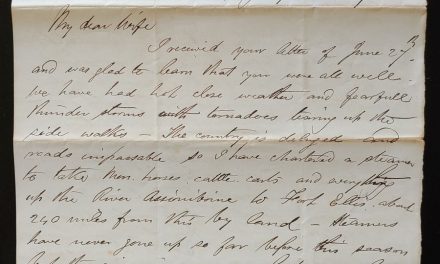 My dear Wife
I received your letter of June 27th
and was glad to learn that you were all well.
We have had hot close weather and fearfull
thunder storms with tornadoes tearing up the
side walks – The country is deluged and
roads impassable so I have chartered a steamer
to take men, horses, cattle, carts and everything
up the River Assiniboine to Fort Ellice about
240 miles from this by land – Steamers
have never gone up so far before this season